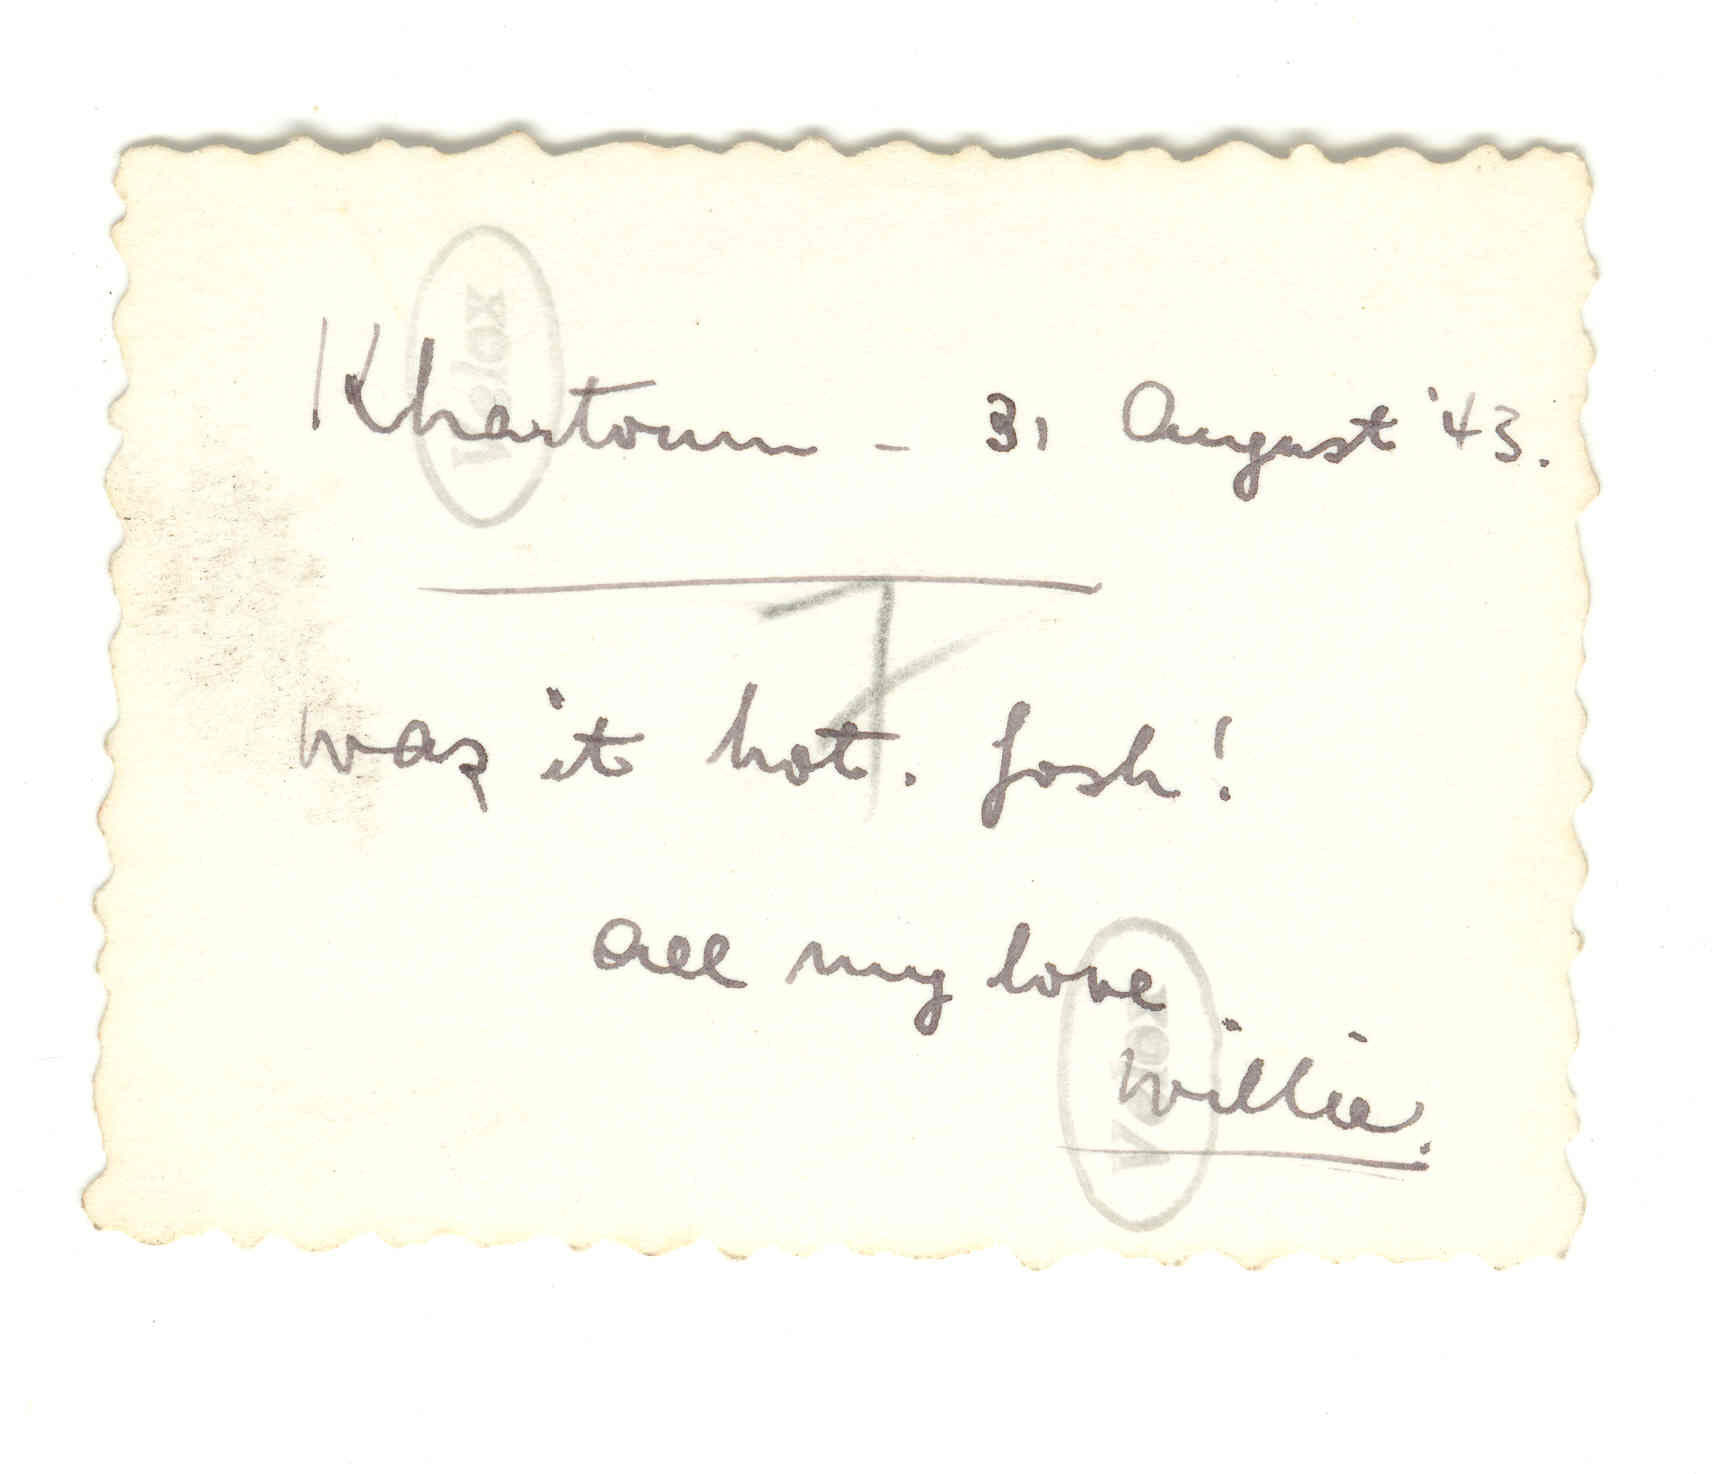 Velox
Khartoum - 31 August '43.
7
was it hot. Gosh!
all my love
Willie.
Velox